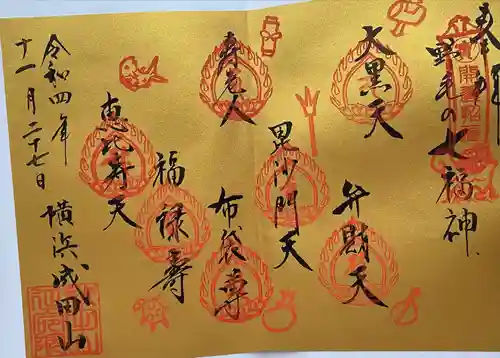 野毛の七福神
大黒天
弁財天
毘沙門天
寿老人
布袋尊
福禄壽
恵比寿天
令和四年
十一月二十七日
横浜成田山